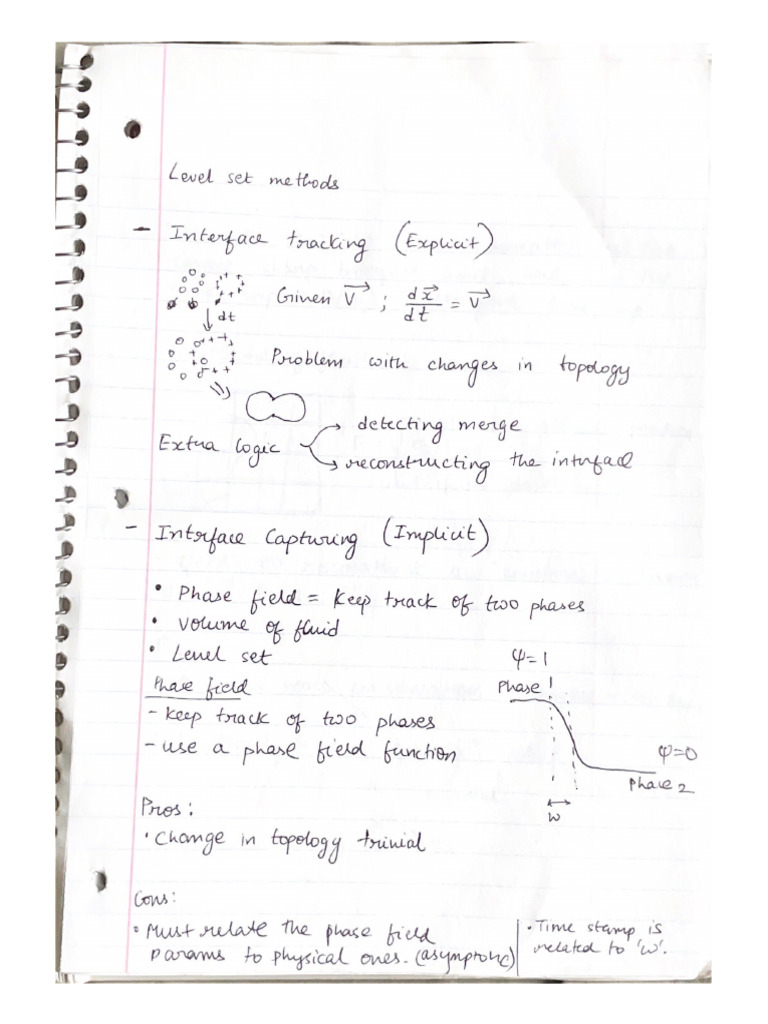 Level set methods
- Interface tracking (Explicit)
Given V⃗ ; dx⃗/dt = V⃗
dt
Problem with changes in topology
Extra logic → detecting merge
→ reconstructing the interface
- Interface Capturing (Implicit)
• Phase field = Keep track of two phases
• Volume of fluid
• Level set
Phase field
- Keep track of two phases
- use a phase field function
ψ=1
Phase 1
ψ=0
Phase 2
W
Pros:
• Change in topology trivial
Cons:
• Must relate the phase field
params to physical ones. (asymptotic)
• Time stamp is
related to 'W'.